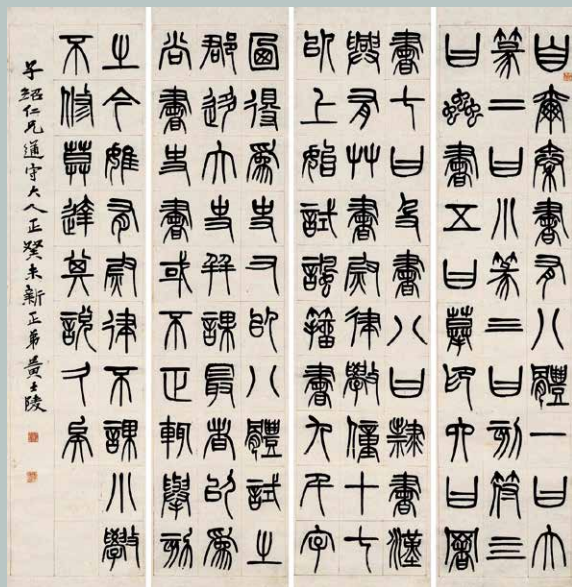 自爾秦書有八體一曰大
篆二曰小篆三曰刻符亖
曰蟲書五曰摹印六曰署
書七曰殳書八曰隸書漢
興有艸書尉律學僮十七
㠯上始試諷籀書九千字
迺得爲史又㠯八體試之
郡迻大史并課最者㠯爲
尚書史書或不正輒舉劾
之今雖有尉律不課小學
不修莫達其說久矣
子紹仁兄通守大人正癸未新正弟黃士陵